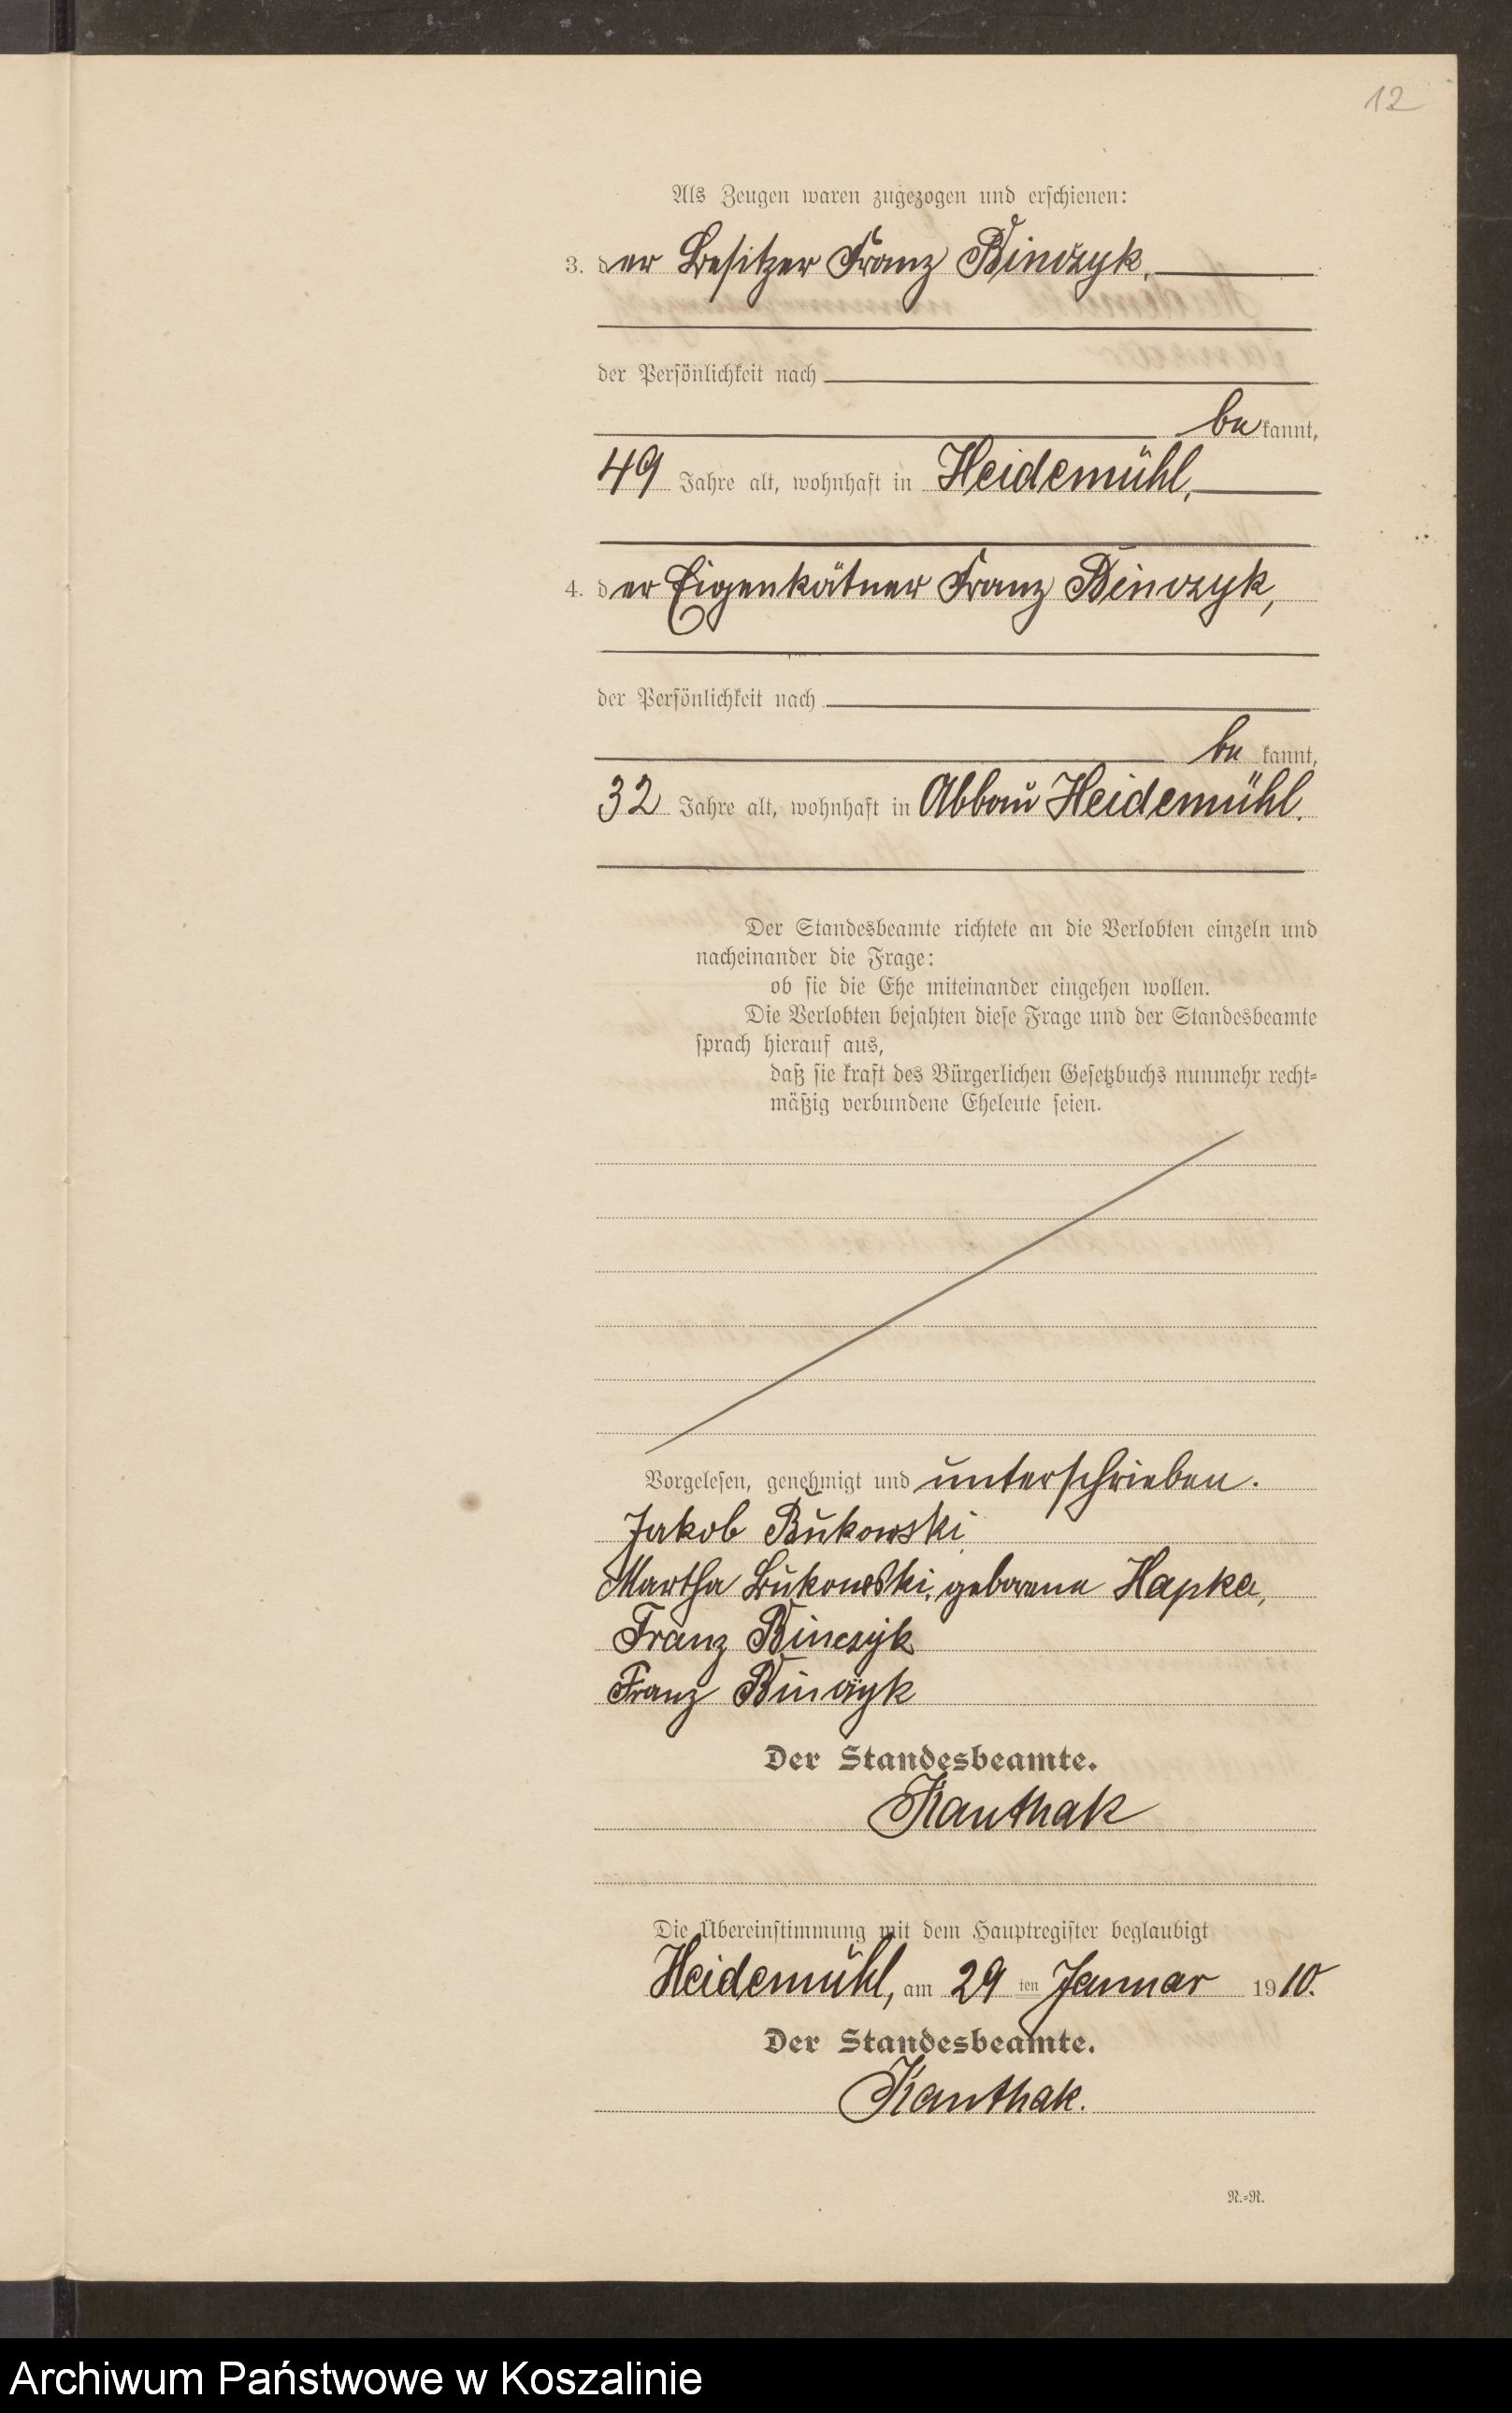 12
Als Zeugen waren zugezogen und erschienen:
3. der Besitzer Franz Binczyk,
der Persönlichkeit nach
be kannt,
49 Jahre alt, wohnhaft in Heidemühl,
4. der Eigenkätner Franz Binczyk,
der Persönlichkeit nach
be kannt,
32 Jahre alt, wohnhaft in Abbau Heidemühl.
Der Standesbeamte richtete an die Verlobten einzeln und
nacheinander die Frage:
ob sie die Ehe miteinander eingehen wollen.
Die Verlobten bejahten diese Frage und der Standesbeamte
sprach hierauf aus,
daß sie kraft des Bürgerlichen Gesetzbuchs nunmehr recht-
mäßig verbundene Eheleute seien.
Vorgelesen, genehmigt und unterschrieben.
Jakob Bukowski
Martha Bukowski, geborene Hapka,
Franz Binczyk
Franz Binczyk
Der Standesbeamte.
Kanthak
Die Übereinstimmung mit dem Hauptregister beglaubigt
Heidemühl, am 29 ten Januar 1910.
Der Standesbeamte.
Kanthak.
N.-R.
Archiwum Państwowe w Koszalinie